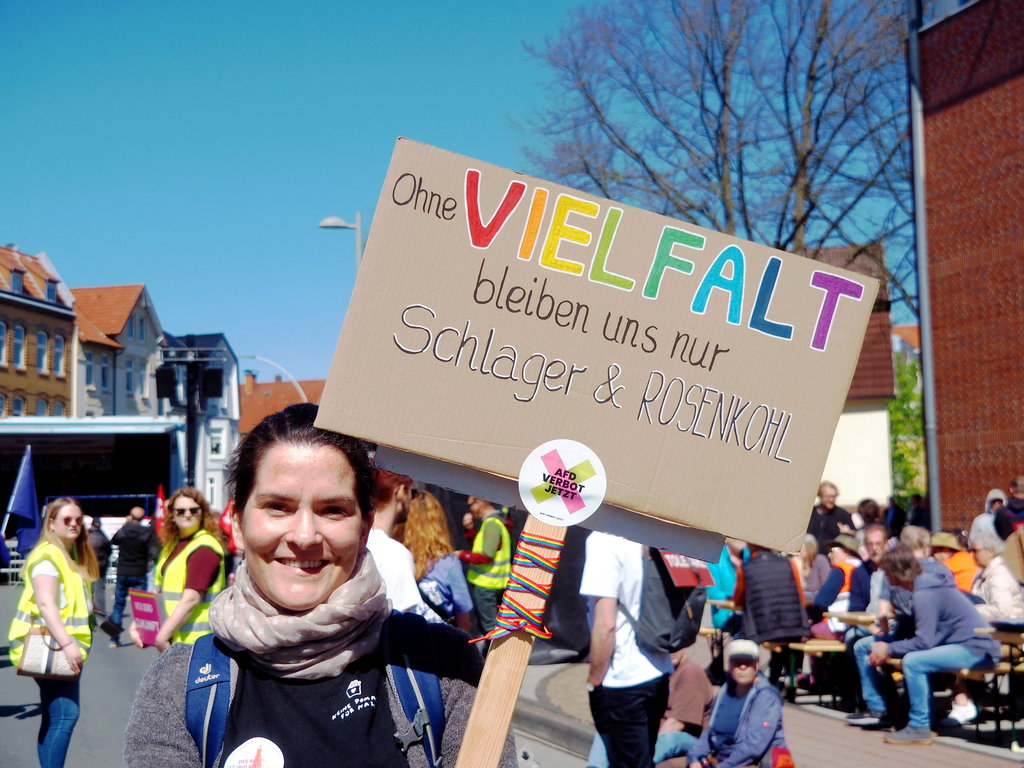 Ohne VIELFALT
bleiben uns nur
Schlager & ROSENKOHL
AFD
VERBOT
JETZT
deuter
KEINE
FÜR
ZUKUNFT